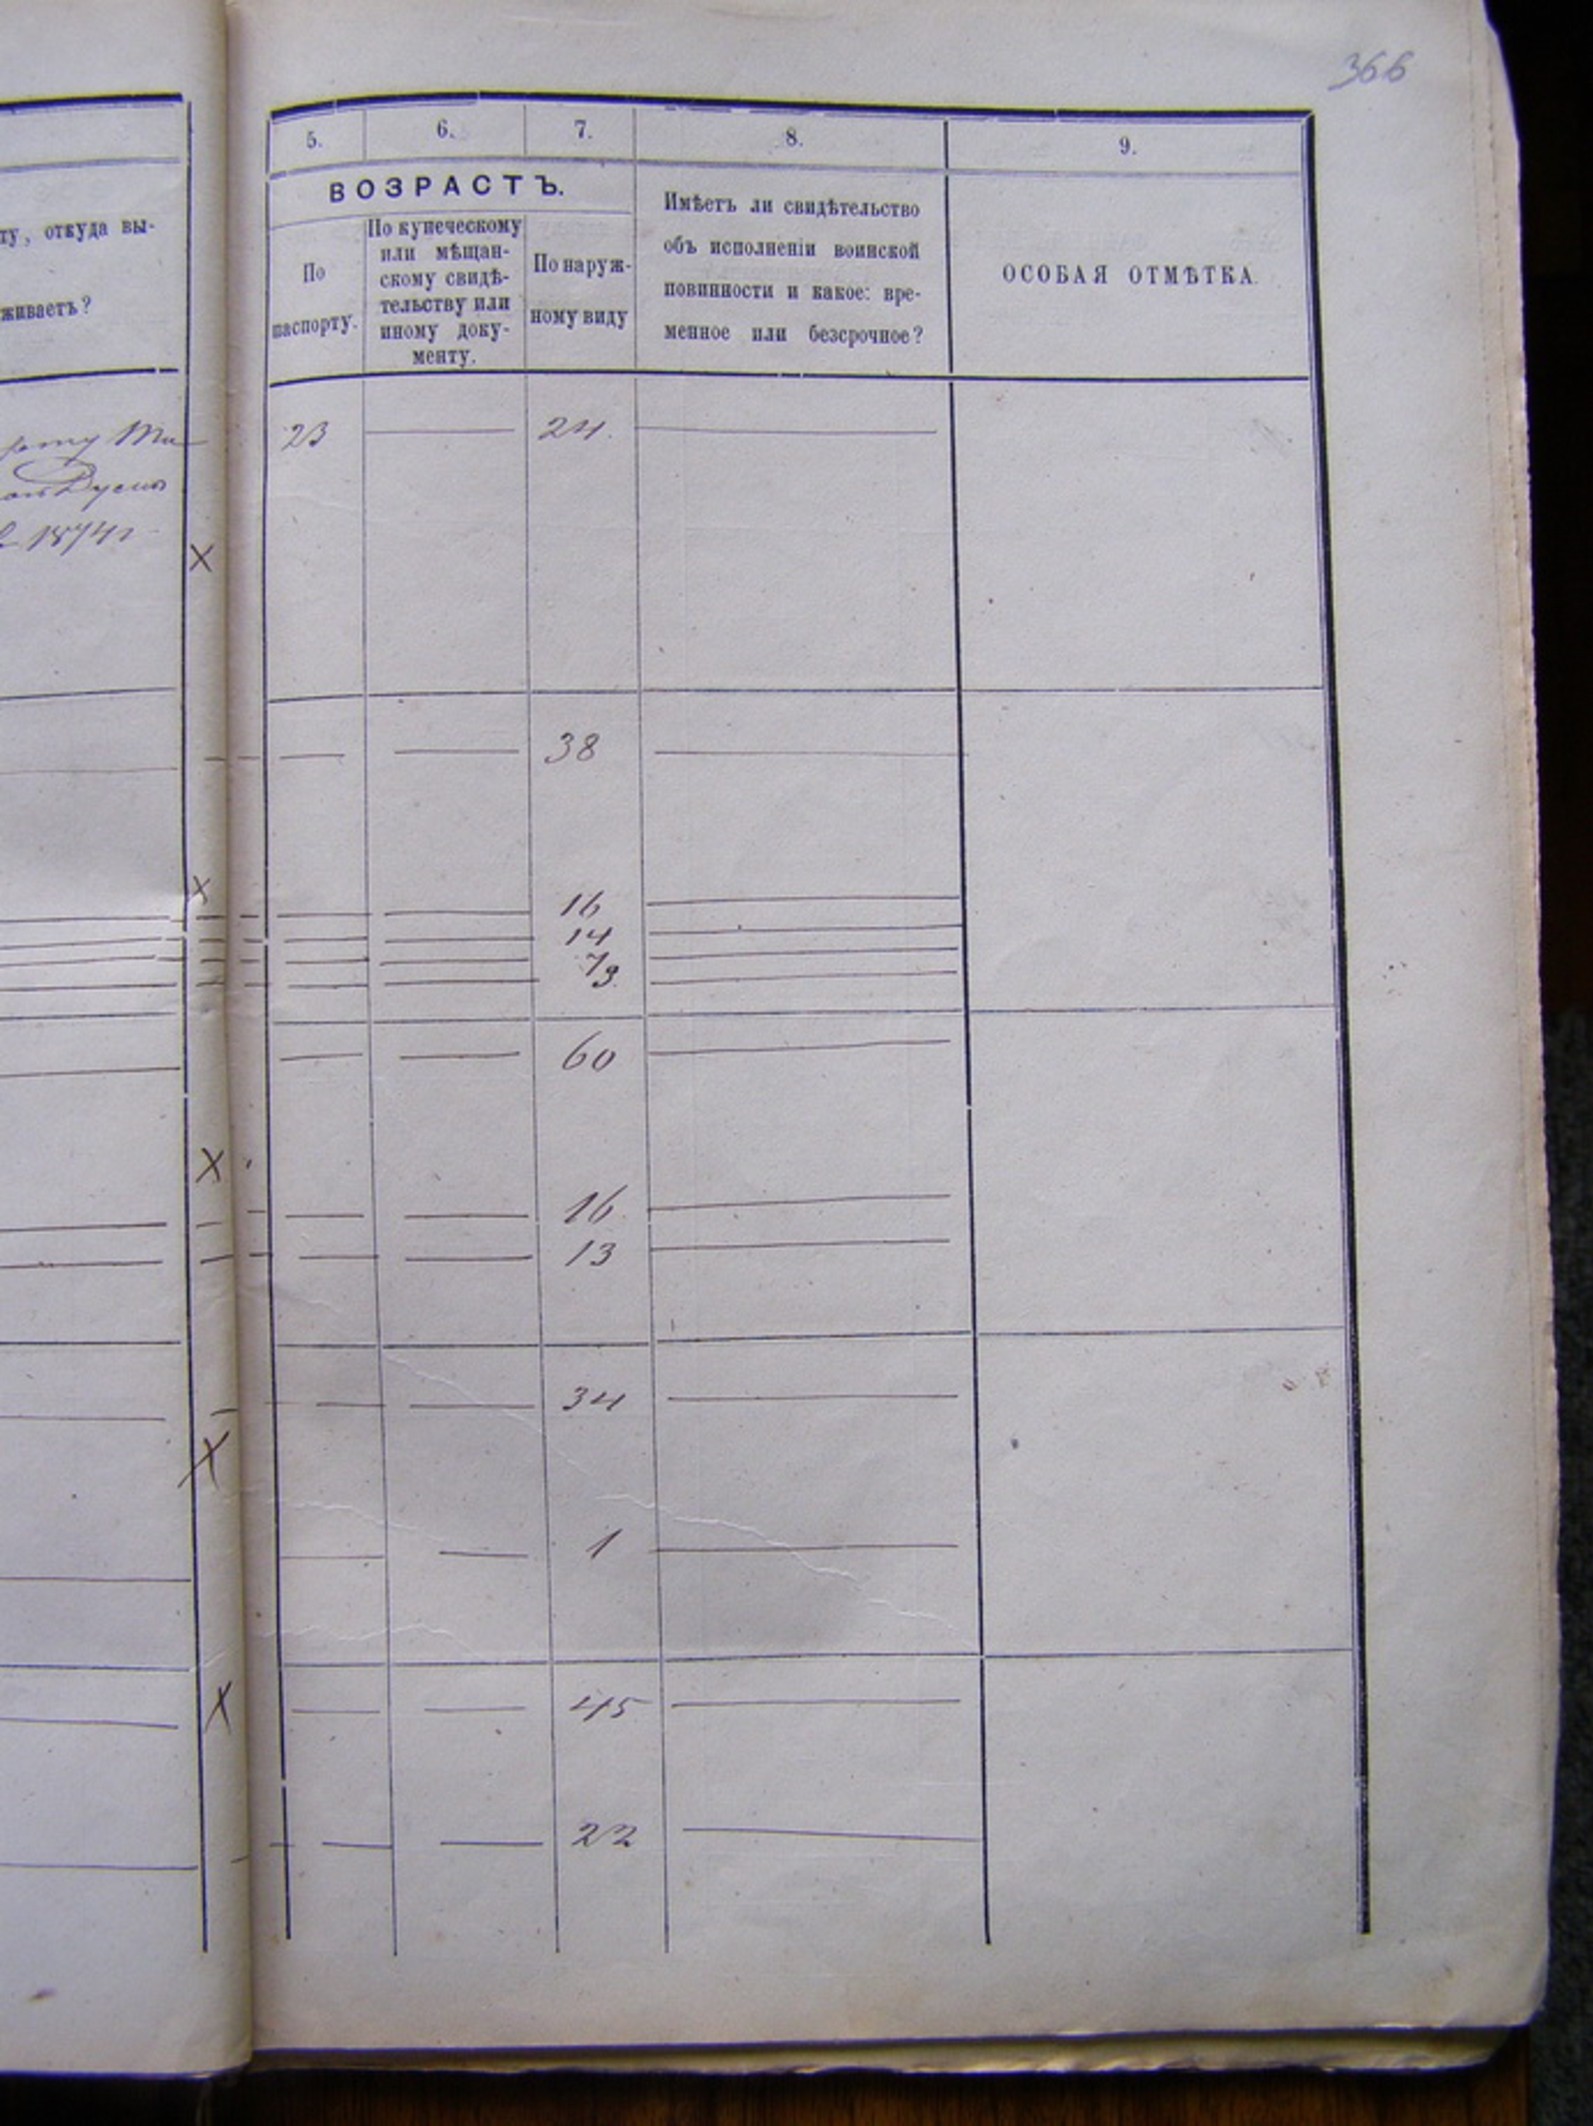 366
5. 6. 7. 8. 9.
ту, откуда вы-
живаетъ?
ВОЗРАСТЪ.
По
паспорту.
По купеческому
или мѣщан-
скому свидѣ-
тельству или
иному доку-
менту.
По наруж-
ному виду
Имѣетъ ли свидѣтельство
объ исполненіи воинской
повинности и какое: вре-
менное или безсрочное?
ОСОБАЯ ОТМѢТКА.
1874 г
23 — 24. —
х
— — 38 —
х
— — 16 —
— — 14 —
— — 7 —
— — 3. —
— — 60 —
х
— — 16 —
— — 13 —
— — 34 —
х
— — 1 —
х — — 45 —
— — 22 —